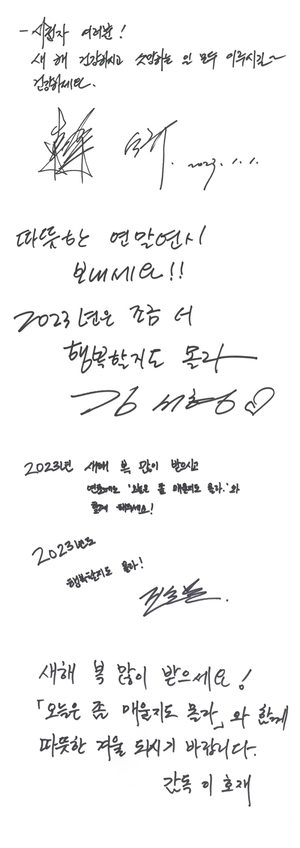 - 시청자 여러분!
새 해 건강하시고 소망하는 일 모두 이루시길~
건강하세요.
2023. 1. 1.
따뜻한 연말연시
보내세요!!
2023년은 조금 더
행복할지도 몰라
김서형♡
2023년 새해 복 많이 받으시고
연말에도 '오늘은 좀 매울지도 몰라'와
함께 해주세요!
2023년도
행복할지도 몰라!
새해 복 많이 받으세요!
「오늘은 좀 매울지도 몰라」와 함께
따뜻한 겨울 되시기 바랍니다.
감독 이호재